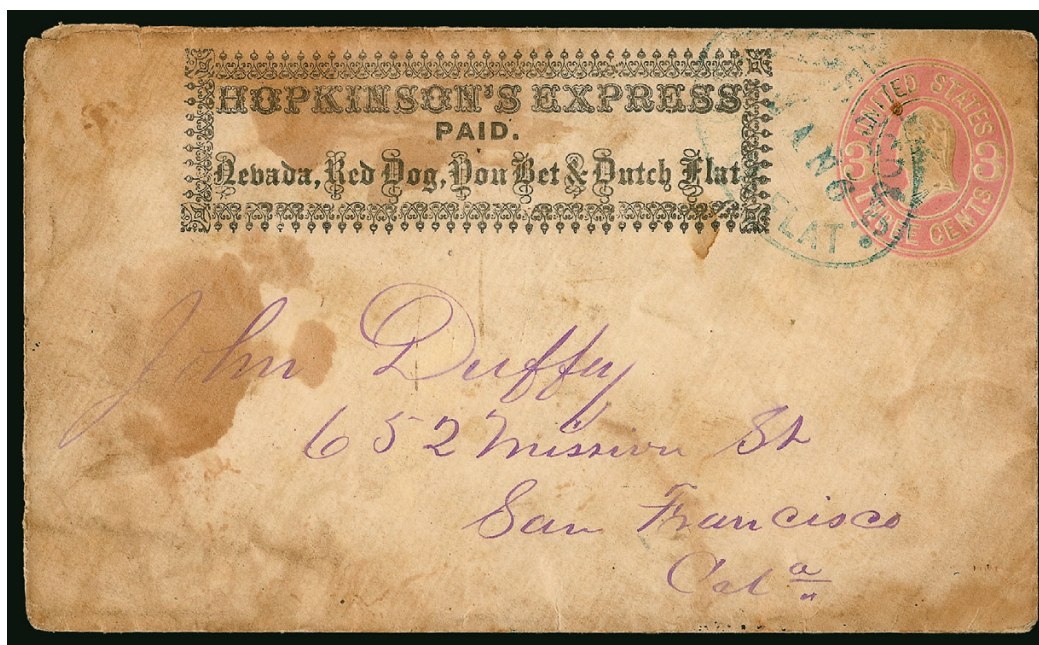 HOPKINSON'S EXPRESS
PAID.
Nevada, Red Dog, You Bet & Dutch Flat
UNITED STATES
3 3
THREE CENTS
FLAT
John Duffy
652 Mission St
San Francisco
Cala